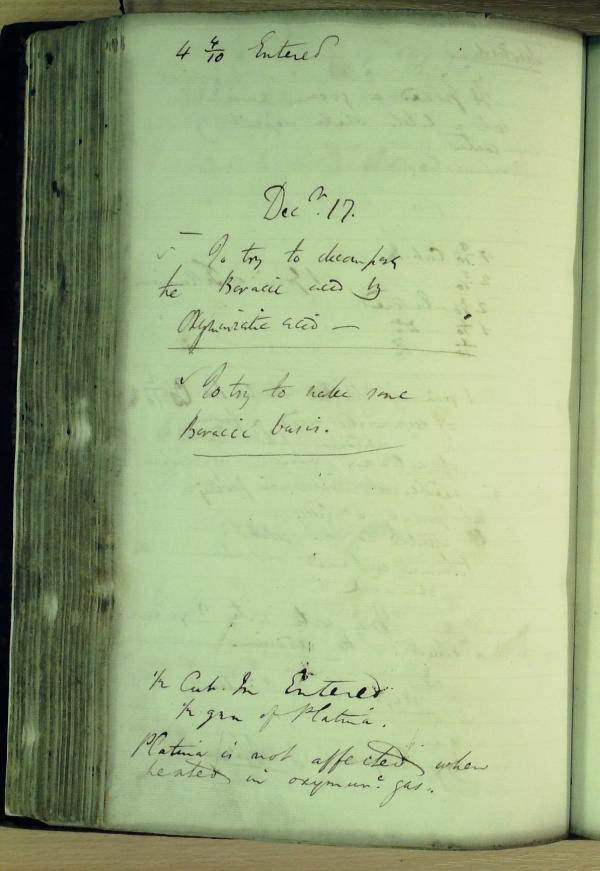 4 4/10 Entered
Decr. 17.
To try to decompose
the Boracic acid by
Oxymuriatic acid —
To try to make some
Boracic basis.
½ Cub. In Entered
½ grn of Platina.
Platina is not affected when
heated in oxymurc. gas.